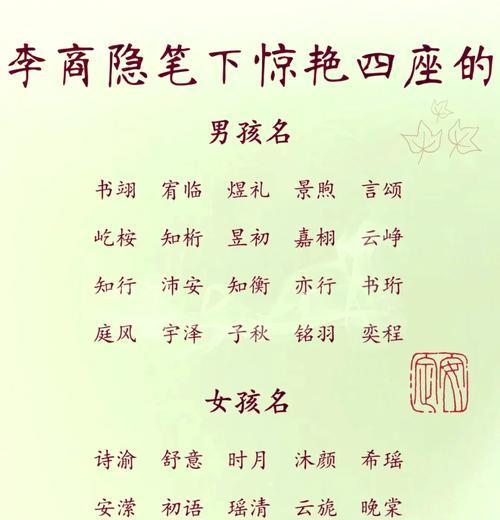 李商隐笔下惊艳四座的
男孩名
书翊 宥临 煜礼 景煦 言颂
屹桉 知桁 昱初 嘉栩 云峥
知行 沛安 知衡 亦行 书珩
庭风 宇泽 子秋 铭羽 奕程
女孩名
诗渝 舒意 时月 沐颜 希瑶
安潆 初语 瑶清 云旎 晚棠